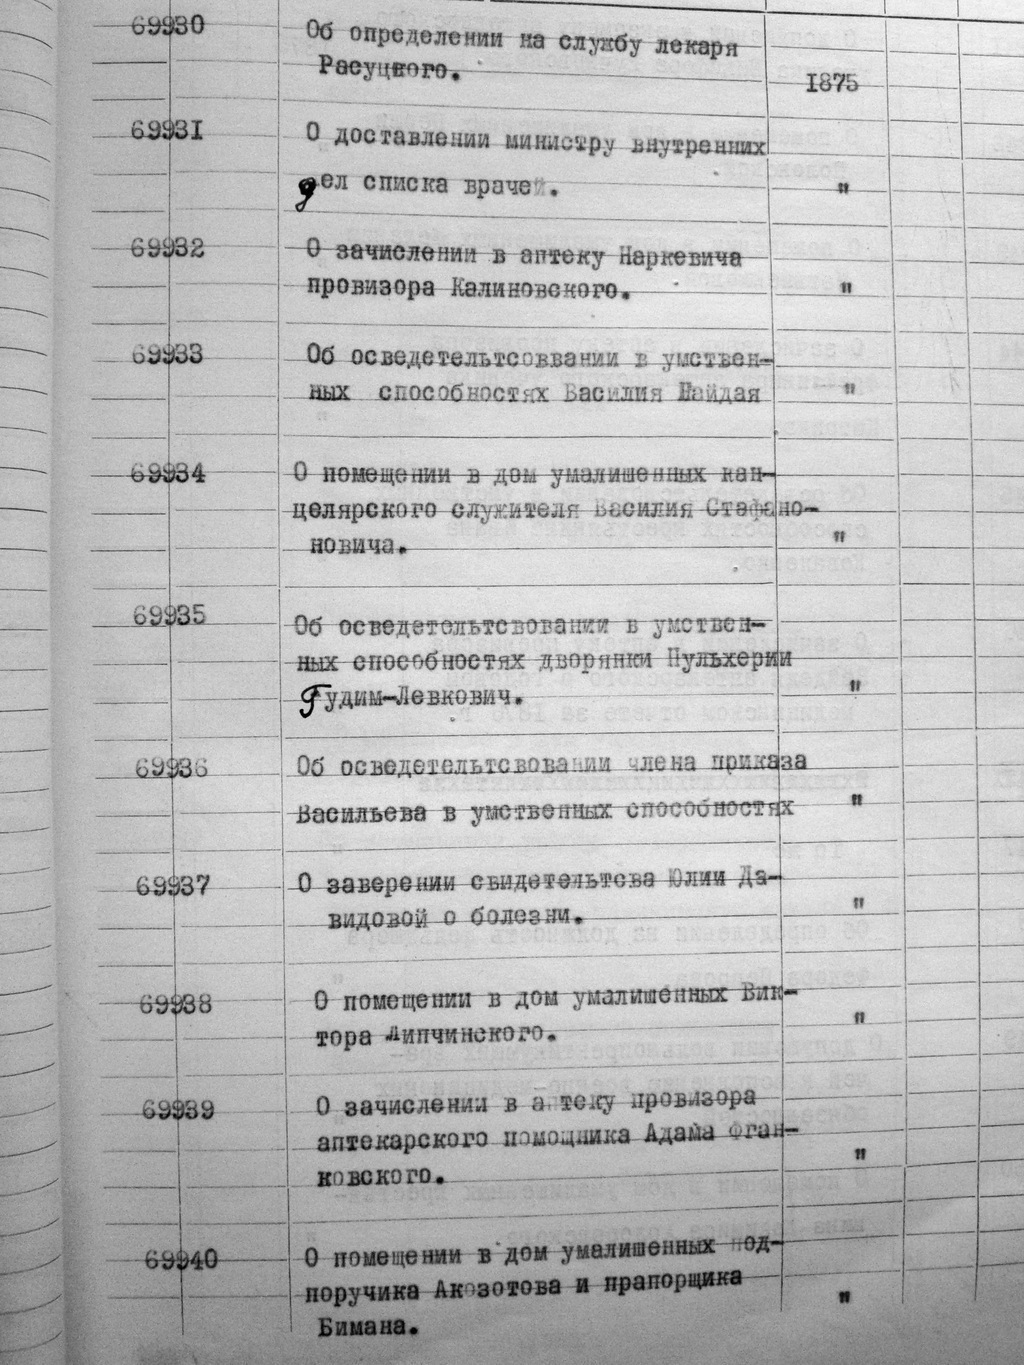 69930 Об определении на службу лекаря
Расуцкого. 1875
69931 О доставлении министру внутренних
дел списка врачей. "
69932 О зачислении в аптеку Наркевича
провизора Калиновского. "
69933 Об осведетельтсоввании в умствен-
ных способностях Василия Шайдая "
69934 О помещении в дом умалишенных кан-
целярского служителя Василия Стафано-
новича. "
69935 Об осведетельтсвовании в умствен-
ных способностях дворянки Пульхерии
Гудим-Левкович. "
69936 Об осведетельтсвовании члена приказа
Васильева в умственных способностях "
69937 О заверении свидетельтсва Юлии Да-
видовой о болезни. "
69938 О помещении в дом умалишенных Вик-
тора Липчинского. "
69939 О зачислении в аптеку провизора
аптекарского помощника Адама Фган-
ковского. "
69940 О помещении в дом умалишенных под-
поручика Акозотова и прапорщика
Бимана. "